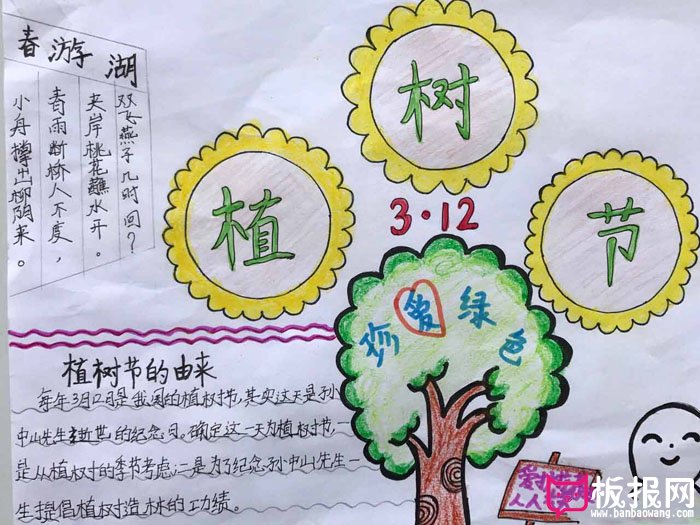 春游湖
双飞燕子几时回？
夹岸桃花蘸水开。
春雨断桥人不度，
小舟撑出柳阴来。
植树节
3·12
珍爱绿色
植树节的由来
每年3月12日是我国的植树节，其实这天是孙
中山先生逝世的纪念日。确定这一天为植树节，一
是从植树的季节考虑；二是为了纪念孙中山先生一
生提倡植树造林的功绩。
人人
板报网
www.banbaowang.com